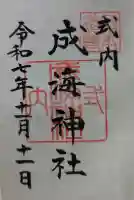 式内
成海神社
令和七年十一月十一日